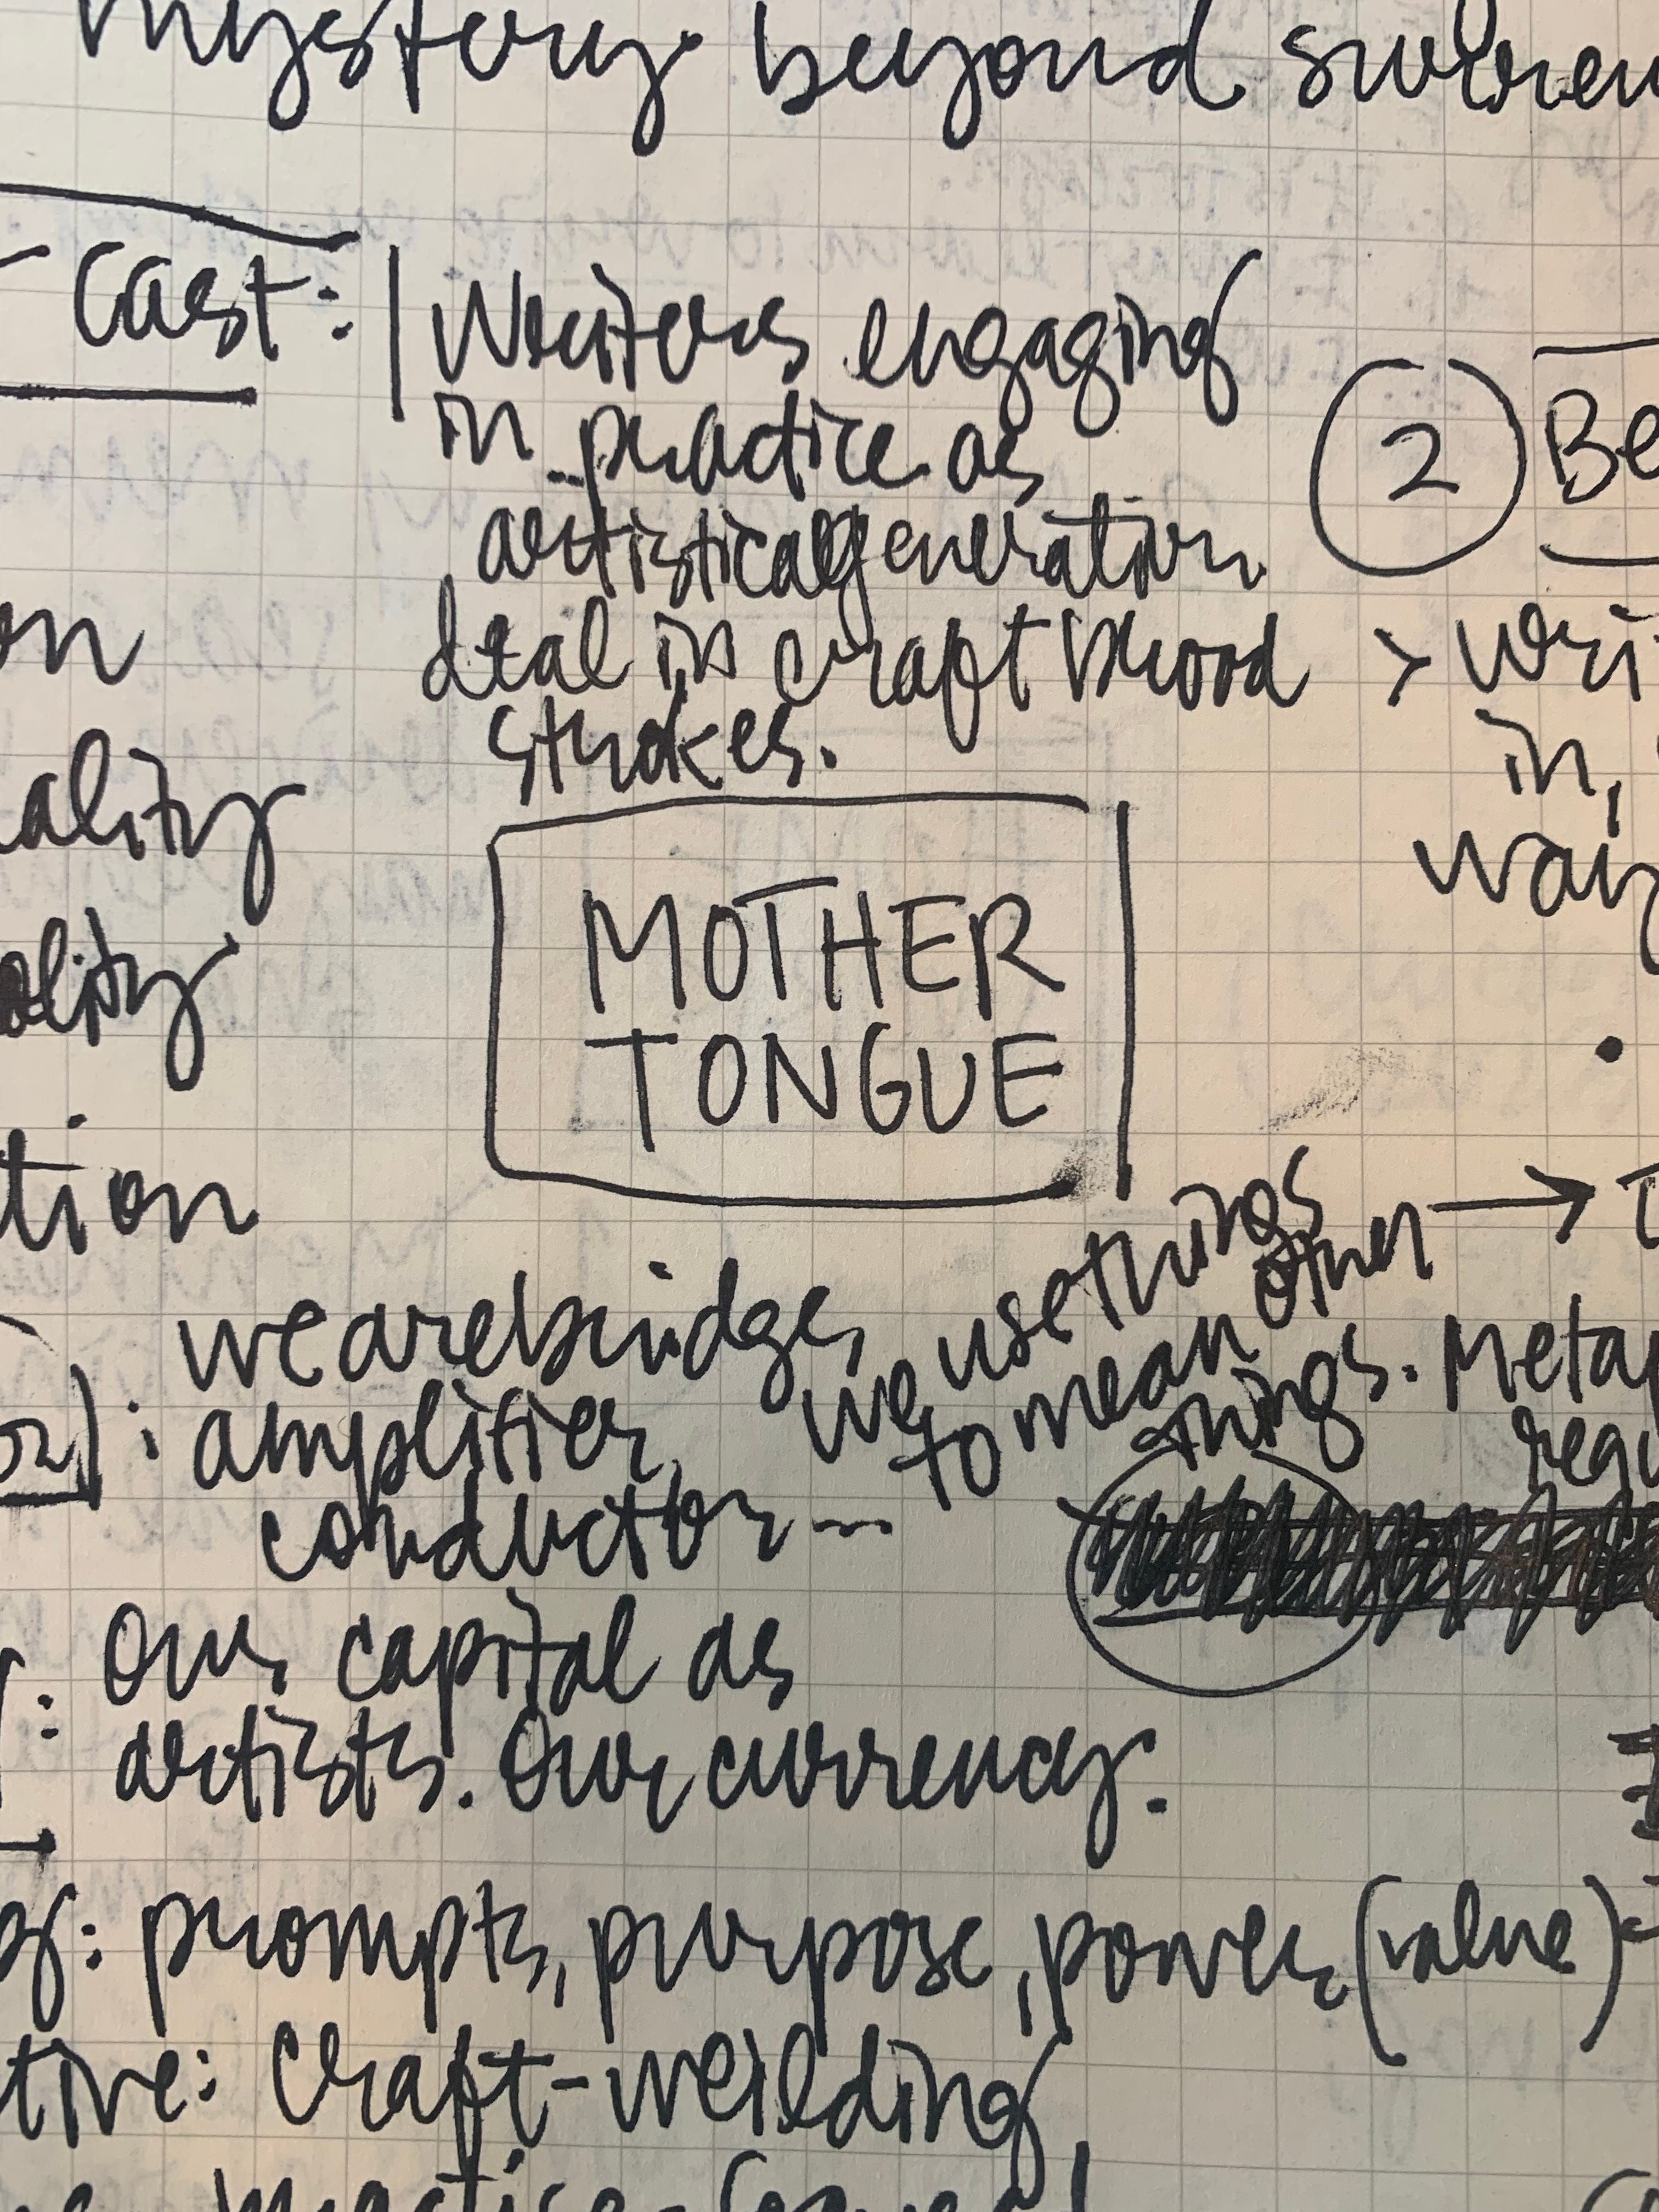 mystery. beyond
cast: Writers engaging
in practice as
artistical generation
deal in craft brood
strokes.
2 Be
on
> wri
in,
ality
way
MOTHER
TONGUE
ality
tion
we are bridge, we use things
to mean other →
things. Meta
amplifier,
conductor---
regu
: Our capital as
artists. Our currency.
: prompts, purpose, power (value)
tive: craft-weilding